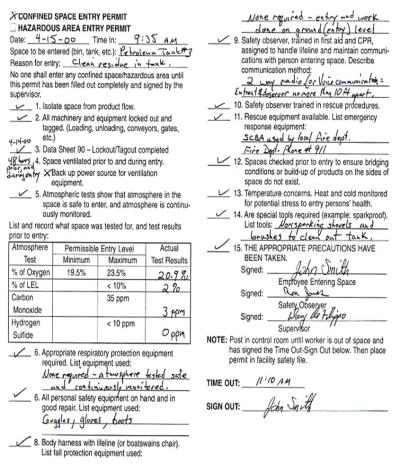 X CONFINED SPACE ENTRY PERMIT
HAZARDOUS AREA ENTRY PERMIT
Date: 4-15-00 Time In: 9:35 AM
Space to be entered (bin, tank, etc.) Petroleum Tank #3
Reason for entry: Clean residue in tank.
No one shall enter any confined space/hazardous area until
this permit has been filled out completely and signed by the
supervisor.
✓ 1. Isolate space from product flow.
✓ 2. All machinery and equipment locked out and
tagged. (Loading, unloading, conveyors, gates,
etc.)
4-14-00
✓ 3. Data Sheet 90 – Lockout/Tagout completed
48 hours prior and during entry
4. Space ventilated prior to and during entry.
X Back up power source for ventilation
equipment.
✓ 5. Atmospheric tests show that atmosphere in the
space is safe to enter, and atmosphere is continu-
ously monitored.
List and record what space was tested for, and test results
prior to entry:
Atmosphere Test Permissible Entry Level Minimum Maximum Actual Test Results
% of Oxygen 19.5% 23.5% 20.9%
% of LEL < 10% 2%
Carbon Monoxide 35 ppm 3 ppm
Hydrogen Sulfide < 10 ppm 0 ppm
✓ 6. Appropriate respiratory protection equipment
required. List equipment used:
None required - atmosphere tested safe
and continuously monitored.
✓ 6. All personal safety equipment on hand and in
good repair. List equipment used:
Goggles, gloves, boots
✓ 8. Body harness with lifeline (or boatswains chair).
List fall protection equipment used:
None required - entry and work
done on ground (entry) level
✓ 9. Safety observer, trained in first aid and CPR,
assigned to handle lifeline and maintain communi-
cations with person entering space. Describe
communication method:
2 way radio/or Voice communication:
Entrant & observer no more than 10 ft apart.
✓ 10. Safety observer trained in rescue procedures.
✓ 11. Rescue equipment available. List emergency
response equipment:
SCBA used by local Fire dept.
Fire Dept. Phone # 911
✓ 12. Spaces checked prior to entry to ensure bridging
conditions or build-up of products on the sides of
space do not exist.
✓ 13. Temperature concerns. Heat and cold monitored
for potential stress to entry persons' health.
✓ 14. Are special tools required (example: sparkproof).
List tools: Nonsparking shovels and
brushes to clean out tank.
✓ 15. THE APPROPRIATE PRECAUTIONS HAVE
BEEN TAKEN.
Signed: John Smith
Employee Entering Space
Signed: Ron Jones
Safety Observer
Signed: Mary
Supervisor
NOTE: Post in control room until worker is out of space and
has signed the Time Out-Sign Out below. Then place
permit in facility safety file.
TIME OUT: 11:10 AM
SIGN OUT: John Smith